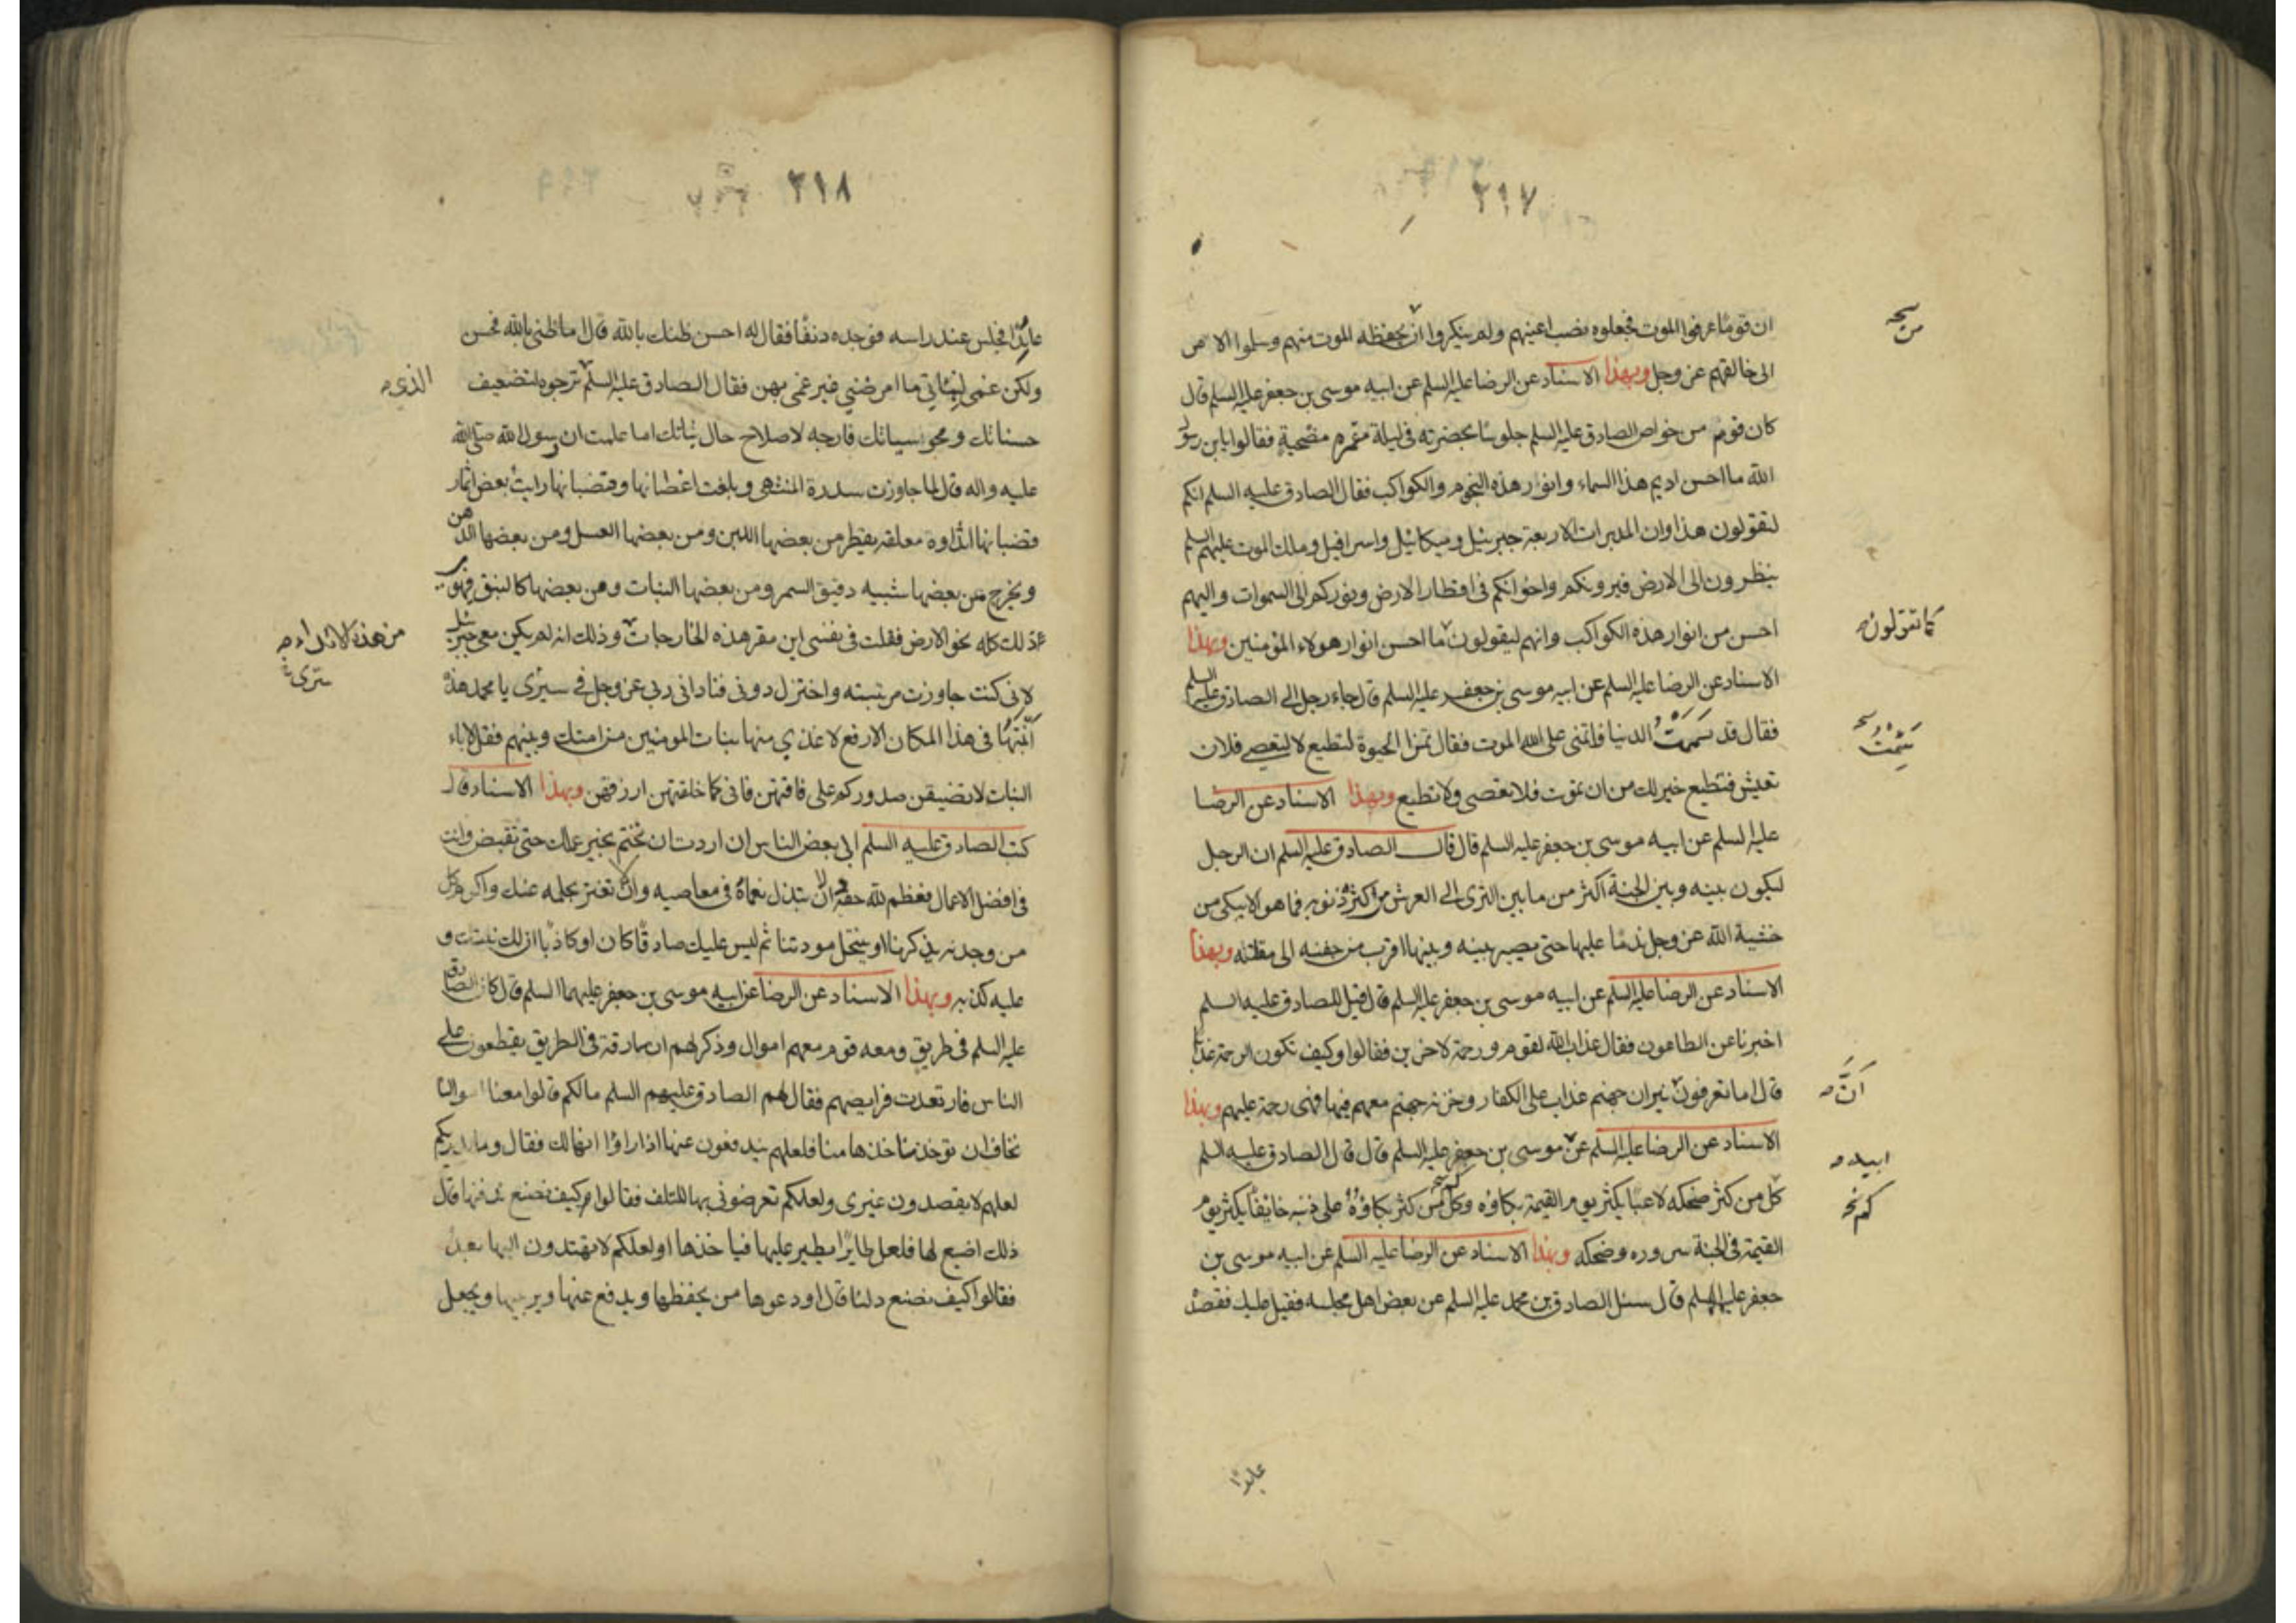 ٣١٧
ان قوما عرفوا الموت فجعلوه نصب اعينهم ولم ينكروا ان يحفظه الموت منهم وسلموا الامر
من نسخه
الى خالقهم عز وجل وبهذا الاسناد عن الرضا عليه السلم عن ابيه موسى بن جعفر عليه السلم قال
كان قوم من خواص الصادق عليه السلم جلوسا بحضرته في ليلة مقمرة مضحية فقالوا يا بن رسول
الله ما احسن اديم هذا السماء وانوار هذه النجوم والكواكب فقال الصادق عليه السلم انكم
لتقولون هذا وان المدبرات الاربعة جبرئيل وميكائيل واسرافيل وملك الموت عليهم السلم
ينظرون الى الارض فيرونكم واخوانكم في اقطار الارض ونوركم الى السموات واليهم
احسن من انوار هذه الكواكب وانهم ليقولون ما احسن انوار هولاء المؤمنين وبهذا
كما تقولون
الاسناد عن الرضا عليه السلم عن ابيه موسى بن جعفر عليه السلم قال جاء رجل الى الصادق عليه السلم
فقال قد سئمت الدنيا فاتمنى على الله الموت فقال تمن الحيوة لتطيع لا لتعصى فلان
تعيش فتطيع خير لك من ان تموت فلا تعصى ولا تطيع وبهذا الاسناد عن الرضا
عليه السلم عن ابيه موسى بن جعفر عليه السلم قال قال الصادق عليه السلم ان الرجل
ليكون بينه وبين الجنة اكثر من ما بين الثرى الى العرش من اكثره ذنوبه فما هو الا يبكى من
خشية الله عز وجل ندما عليها حتى يصير بينه وبينها اقرب من جفنه الى مقلته وبهذا
الاسناد عن الرضا عليه السلم عن ابيه موسى بن جعفر عليه السلم قال قيل للصادق عليه السلم
اخبرنا عن الطاعون فقال عذاب الله لقوم ورحمة لاخرين فقالوا وكيف تكون الرحمة عذابا
قال اما تعرفون نيران جهنم عذاب على الكفار وخزنة جهنم معهم فيها فهى رحمة عليهم وبهذا
ان
الاسناد عن الرضا عليه السلم عن موسى بن جعفر عليه السلم قال قال الصادق عليه السلم
ابيه
كل من كثر ضحكه لاعبا يكثر يوم القيمة بكاؤه وكل من كثر بكاؤه على ذنبه خايفا يكثر يوم
كم نخ
القيمة في الجنة سروره وضحكه وبهذا الاسناد عن الرضا عليه السلم عن ابيه موسى بن
جعفر عليه السلم قال سئل الصادق بن محمد عليه السلم عن بعض اهل مجلسه فقيل عليل فقصده
عايدا
٣١٨
عايدا فجلس عند راسه فوجده دنفا فقال له احسن ظنك بالله قال اما ظنى بالله فحسن
ولكن غمى لبناتي ما امرضني غير غمى بهن فقال الصادق عليه السلم ترجوه لتضعيف
الذي
حسناتك ومحو سيياتك فارجه لاصلاح حال بناتك اما علمت ان رسول الله صلى الله
عليه واله قال لما جاوزت سدرة المنتهى وبلغت اغصانها وقضبانها رايت بعض اثمار
قضبانها اثداوه معلقة يقطر من بعضها اللبن ومن بعضها العسل ومن بعضها الدهن
ويخرج عن بعضها شبيه دقيق السمر ومن بعضها النبات ومن بعضها كالنبق فيهوى
ذلك كله نحو الارض فقلت في نفسى اين مقر هذه الخارجات وذلك انه لم يكن معى جبرئيل
من هذه الاثداء
لانى كنت جاوزت مرتبته واختزل دونى فنادانى ربى عز وجل في سرى يا محمد هذه
انبتها في هذا المكان الارفع لاغذي منها بنات المومنين من امتك وبنيهم فقل لاباء
البنات لا تضيقن صدوركم على فاقتهن فانى كما خلقتهن ارزقهن وبهذا الاسناد قال
كتب الصادق عليه السلم الى بعض الناس ان اردت ان تختم بخير عملك حتى تقبض وانت
في افضل الاعمال فعظم لله حقه ان لا تبذل نعماءه في معاصيه وان تغتر بحلمه عنك واكرم كل
من وجدته يذكرنا او ينتحل مودتنا ثم ليس عليك صادقا كان او كاذبا انما لك نيتك و
عليه كذبه وبهذا الاسناد عن الرضا عن ابيه موسى بن جعفر عليهما السلم قال كان الصادق
عليه السلم في طريق ومعه قوم معهم اموال وذكر لهم ان بارقة في الطريق يقطعون على
الناس فارتعدت فرايصهم فقال لهم الصادق عليهم السلم ما لكم قالوا معنا اموالنا
نخاف ان توخذ منا خذها منا فلعلهم يندفعون عنها اذا راوا انها لك فقال وما يدريكم
لعلهم لا يقصدون غيرى ولعلكم تعرضونى بها للتلف فقالوا وكيف نصنع ندفنها قال
ذلك اضيع لها فلعل طايرا يطير عليها فياخذها او لعلكم لا تهتدون اليها بعد
فقالوا كيف نصنع دلنا قال اودعوها من يحفظها ويدفع عنها ويربيها ويجعل